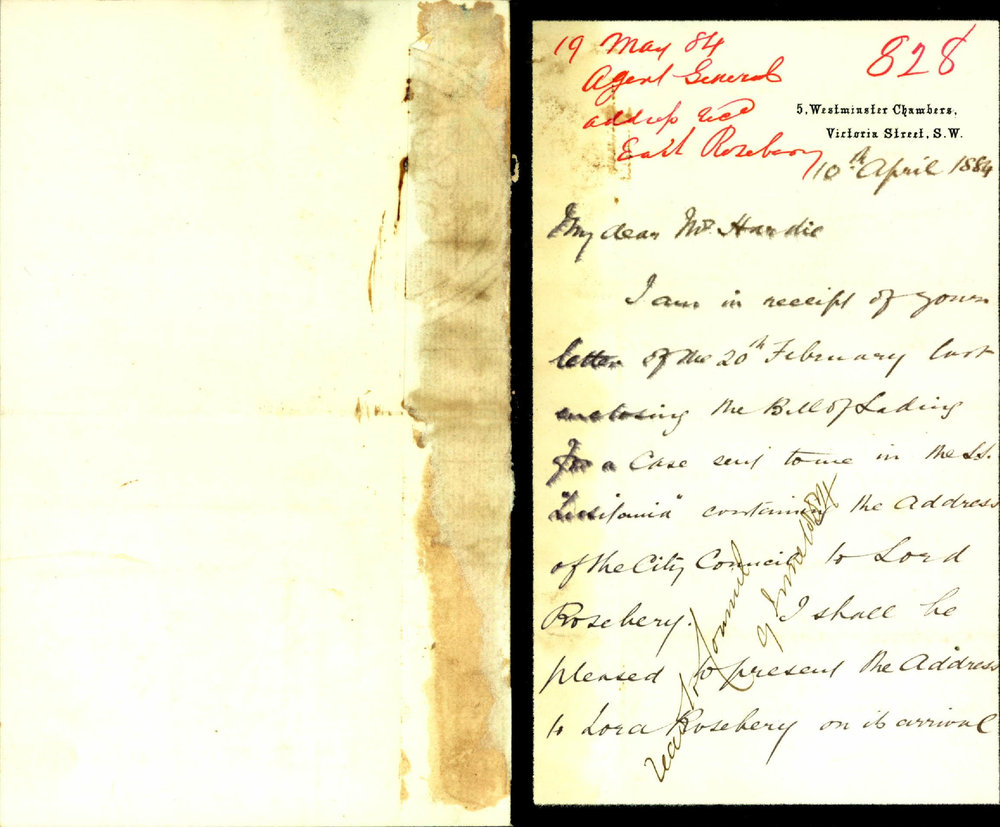 19 May 84
Agent General
address rec^d
Earl Rosebery
828
5, Westminster Chambers,
Victoria Street, S.W.
10th April 1884
My dear Mr. Hardie
I am in receipt of your
letter of the 20th February last
enclosing the Bill of Lading
for a Case sent to me in the S.S.
"Lusitania" containing the Address
of the City Council to Lord
Rosebery. I shall be
pleased to present the Address
to Lord Rosebery on its arrival
read in Council
9 June 1884